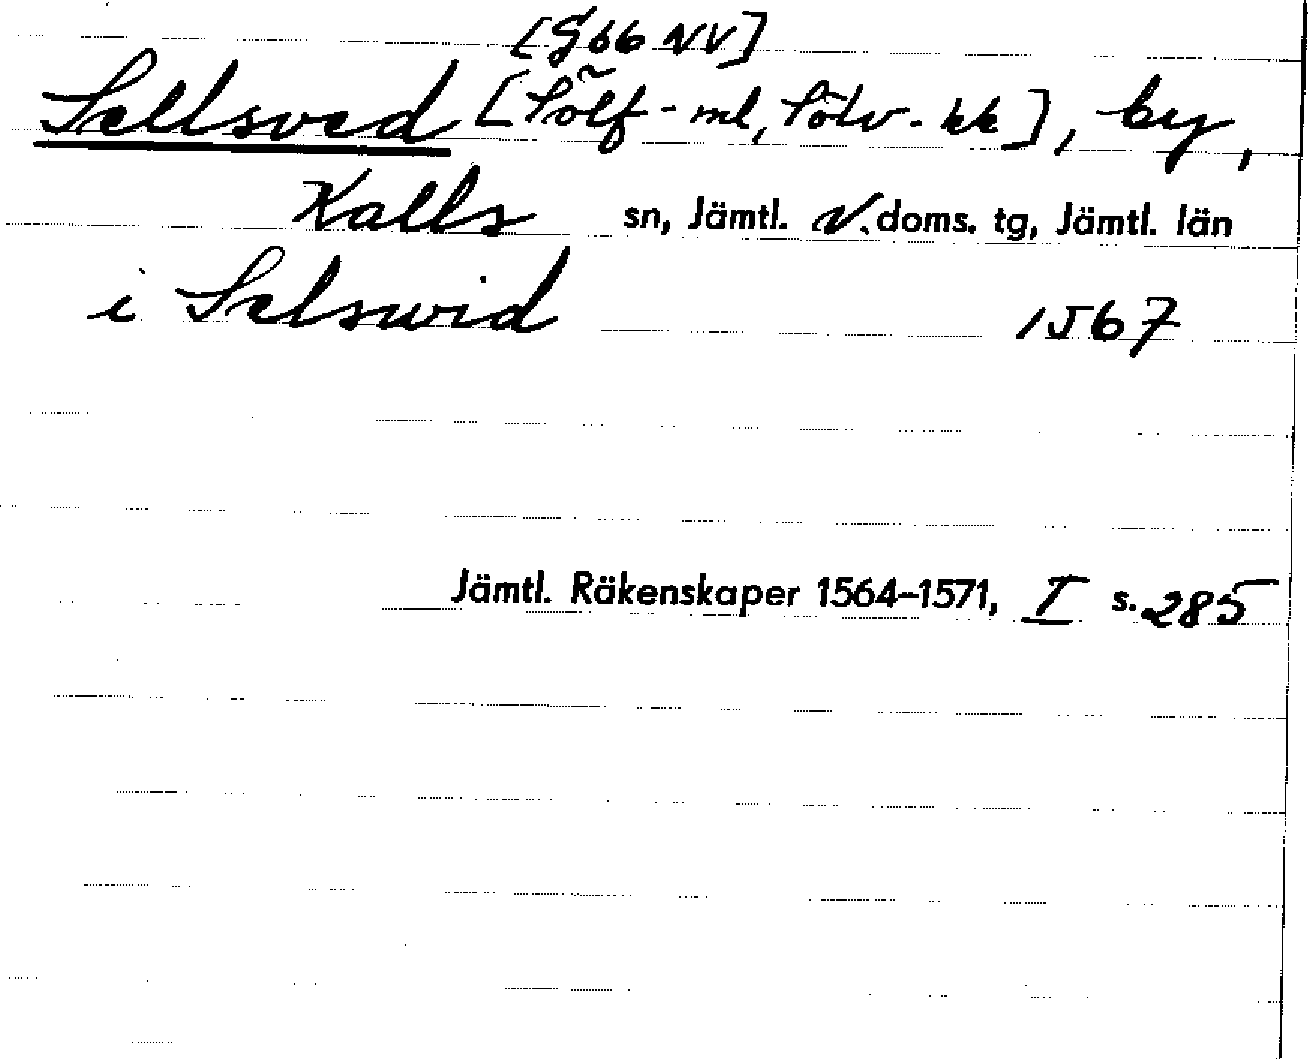 [§66 NV]
Sellsved [Sölf- ml, Sölv- kk], by,
Kalls sn, Jämtl. N. doms. tg, Jämtl. län
i Selswid 1567
Jämtl. Räkenskaper 1564-1571, I s. 285